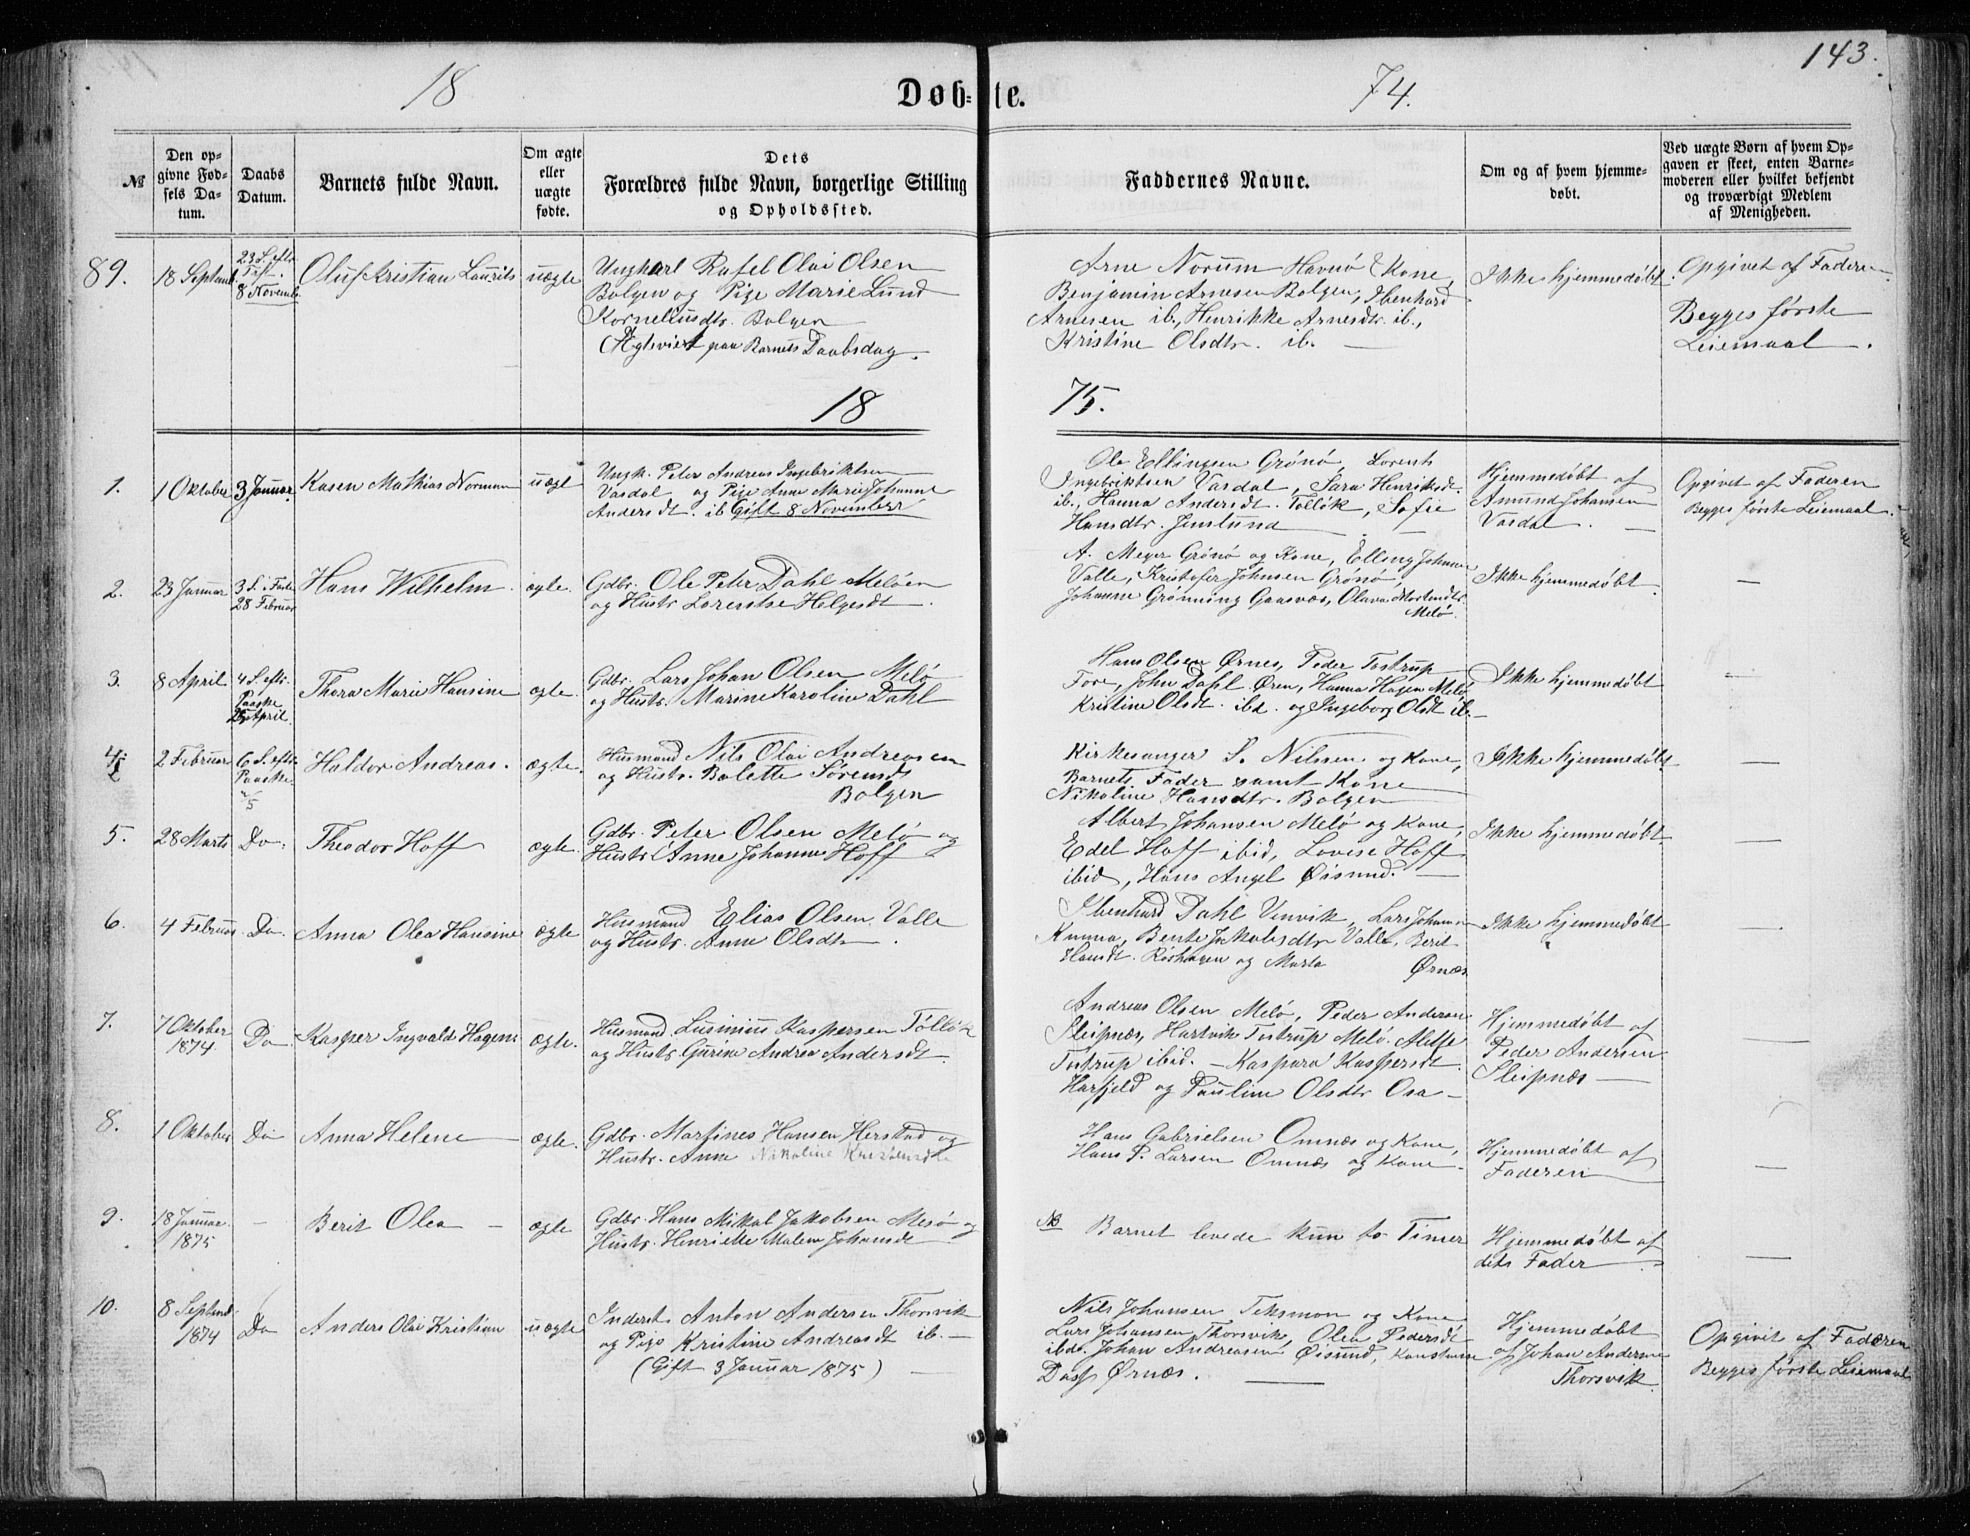 143.
18 Døb= te. 74.
№
Den op=
givne Fød=
sels Da=
tum.
Daabs
Datum.
Barnets fulde Navn.
Om ægte
eller
uægte
fødte.
Dets
Forældres fulde Navn, borgerlige Stilling
og Opholdssted.
Faddernes Navne.
Om og af hvem hjemme=
døbt.
Ved uægte Børn af hvem Op=
gaven er skeet, enten Barne=
moderen eller hvilket bekjendt
og troværdigt Medlem
af Menigheden.
89.
18 Septemb.
23 S. eftr.
8 Novemb.
Oluf Kristian Laurits
uægte
Ungkarl Rafel Olai Olsen
Bolgen og Pige Marie Lund
Korneliusdtr. Bolgen
(Ægteviet paa Barnets Daabsdag.
Arne Norum Havnø & Kone,
Benjamin Arnesen Bolgen, Ibenhard
Arnesen ib., Henrikke Arnesdtr. ib.,
Kristine Olsdtr. ib. —
Ikke hjemmedøbt.
Opgivet af Faderen
Begges første
Leiemaal.
18 75.
1.
1 Oktober
3 Januar
Kasen Mathias Norman
uægte
Ungk. Peter Andreas Ingebriktsen
Vasdal og Pige Anne Marie Johanne
Andersdt. ib. Gift 8 November
Ole Ellingsen Grønø, Lorents
Ingebriktsen Vasdal, Sara Henriksdt.
ib., Hanna Andersdt. Tollök, Sofie
Hansdtr. Jenslund —
Hjemmedøbt af
Amund Johansen
Vasdal. —
Opgivet af Faderen
Begges første Leiemaal.
2.
23 Januar
3 S. i Faste
28 Februar
Hans Wilhelm.
ægte.
Gdbr. Ole Peter Dahl Meløen
og Hustr. Lorentse Helgesdt.
A. Meyer Grønø og Kone, Elling Johnsen
Valle, Kristofer Johnsen Grønø,
Johanne Grønning Gaasvær, Olava Mortensdtr.
Melø.
Ikke hjemmedøbt.
—
3.
8 April
4 S. eftr.
Paaske
25 April.
Thora Marie Hansine
ægte.
Gdbr. Lars Johan Olsen Melø
og Hustr. Marine Karoline Dahl
Hans Olsen Ørnes, Peder Tostrup
Fore, John Dahl Øren, Hanna Hagen Melø,
Kristine Olsdt. ibd. og Ingeborg Olsdt. ib. —
Ikke hjemmedøbt
—
4.
2 Februar
6 S. eftr.
Paaske
2/5
Haldor Andreas.
ægte.
Husmand Nils Olai Andreassen
og Hustr. Bolette Sørensdt.
Bolgen
Kirkesanger S. Nilssen og Kone,
Barnets Fader samt Kone
Nikoline Hansdtr. Bolgen
Ikke hjemmedøbt.
—
5.
28 Marts
Do.
Theodor Hoff
ægte.
Gdbr. Peter Olsen Melø og
Hustr. Anne Johanne Hoff
Albert Johansen Melø og Kone,
Edel Hoff ibid, Lovise Hoff
ibid, Hans Angel Øisund. —
Ikke hjemmedøbt.
—
6.
4 Februar
Do.
Anna Olea Hansine
ægte
Husmand Elias Olsen Valle
og Hustr. Anne Olsdtr.
Ibenhard Dahl Vinvik, Lars Johansen
Kunna, Bente Jakobsdtr. Valle, Berit
Hansdt. Røshagen og Marta Ørnæs
Ikke hjemmedøbt
—
7.
7 Oktober
1874.
Do
Kasper Ingvald Hagen
ægte.
Husmand Lusinius Kaspersen Tollök
og Hustr. Gurine Andrea Andersdt.
Andreas Olsen Melø, Peder Andersen
Sleipnæs, Hartvik Tostrup Melø. Aletse
Tostrup ibid. — Kaspara Kaspersdt.
Harfjeld og Pauline Olsdtr. Osa —
Hjemmedøbt af
Peder Andersen
Sleipnæs —
—
8.
1 Oktober
Do
Anna Helene —
ægte.
Gdbr. Martines Hansen Herstad og
Hustr. Anne Nikoline Kristensdtr
Hans Gabrielsen Omnæs og Kone,
Hans P. Larsen Omnæs og Kone —
Hjemmedøbt af
Faderen
—
9.
18 Januar
1875
—
Berit Olea —
ægte
Gdbr. Hans Mikal Jakobsen Mesø og
Hustr. Henriette Malene Johansdt
NB Barnet levede kun to Timer
Hjemmedøbt af
dets Fader
—
10.
8 Septemb.
1874
Do
Anders Olai Kristian
uægte
Inderst Anton Andersen Thorsvik
og Pige Kristine Andreasdt ib. —
(Gift 3 Januar 1875) —
Nils Johansen Teksmon og Kone
Lars Johansen Thorsvik, Olea Pedersdt
ibd. Johan Andreasen Øisund, Konstanse
Dass Ørnæs. —
Hjemmedøbt
af Johan Andersen
Thorsvik.
Opgivet af Faderen
Begges første Leiemaal